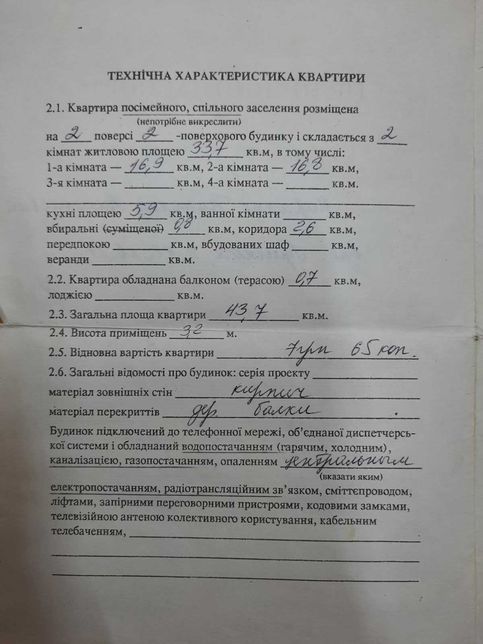 ТЕХНІЧНА ХАРАКТЕРИСТИКА КВАРТИРИ
2.1. Квартира посімейного, спільного заселення розміщена
(непотрібне викреслити)
на 2 поверсі 2 -поверхового будинку і складається з 2
кімнат житловою площею 33,7 кв.м, в тому числі:
1-а кімната — 16,9 кв.м, 2-а кімната — 16,8 кв.м,
3-я кімната — кв.м, 4-а кімната — кв.м.
кухні площею 5,9 кв.м, ванної кімнати кв.м,
вбиральні (суміщеної) 0,8 кв.м, коридора 2,6 кв.м,
передпокою кв.м, вбудованих шаф кв.м,
веранди кв.м.
2.2. Квартира обладнана балконом (терасою) 0,7 кв.м,
лоджією кв.м.
2.3. Загальна площа квартири 43,7 кв.м.
2.4. Висота приміщень 3,2 м.
2.5. Відновна вартість квартири 7грн 65 коп.
2.6. Загальні відомості про будинок: серія проекту
матеріал зовнішніх стін кирпич
матеріал перекриттів дер. балки
Будинок підключений до телефонної мережі, об'єднаної диспетчерсь-
кої системи і обладнаний водопостачанням (гарячим, холодним),
каналізацією, газопостачанням, опаленням центральным
(вказати яким)
електропостачанням, радіотрансляційним зв'язком, сміттєпроводом,
ліфтами, запірними переговорними пристроями, кодовими замками,
телевізійною антеною колективного користування, кабельним
телебаченням,